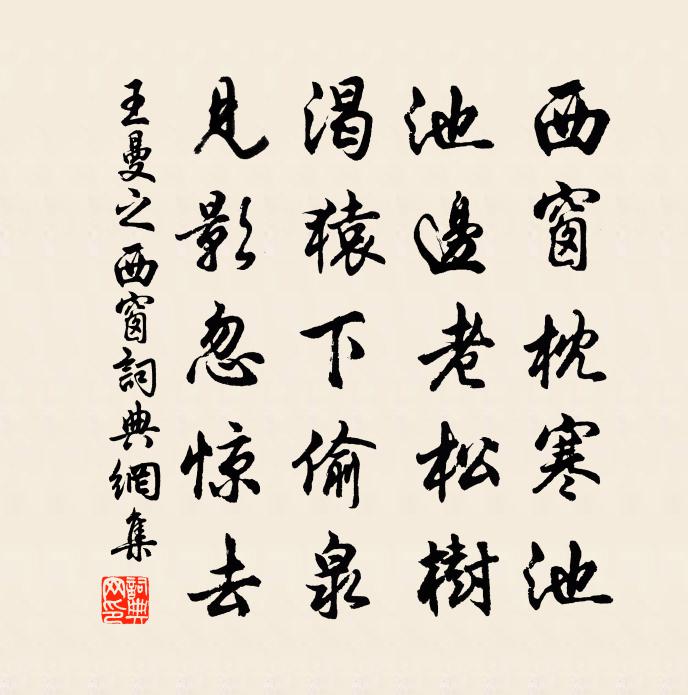 西窗枕寒池
池邊老松樹
渴猿下偷泉
見影忽惊去
王曼之西窗詞典網集
詞典网印